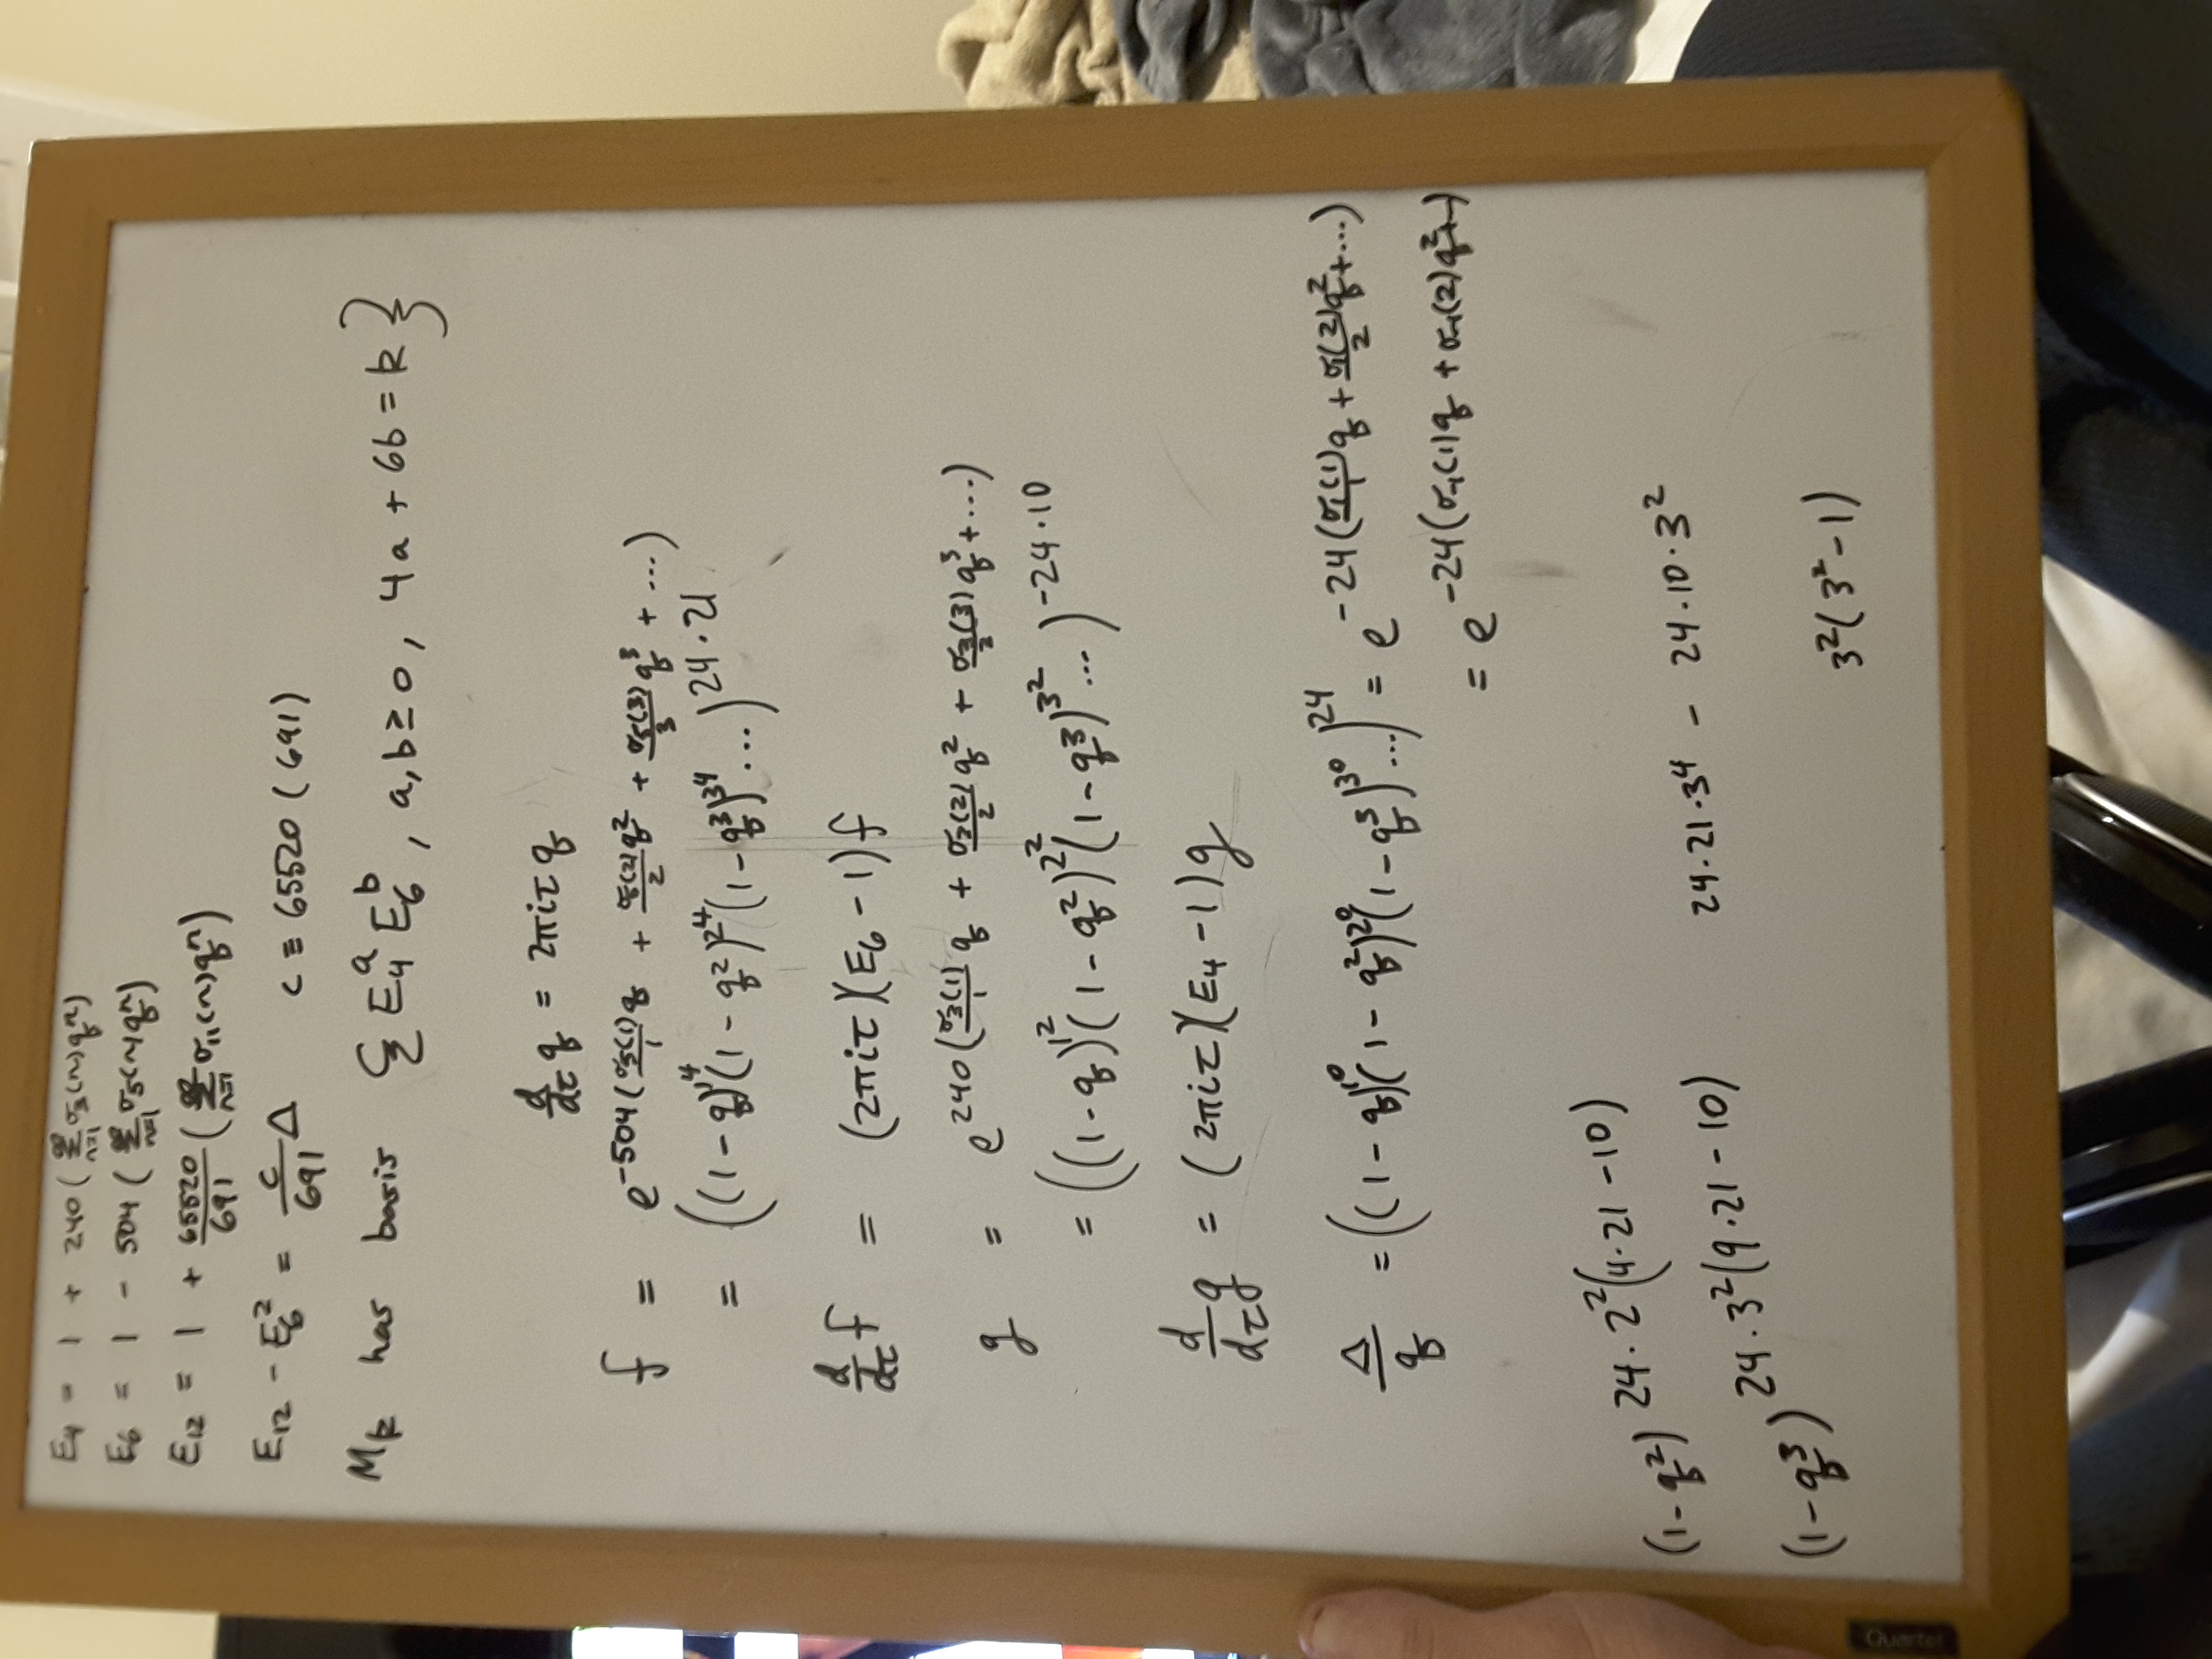 E₄ = 1 + 240 ( ∑_{n=1}^{∞} σ₃(n)qⁿ)
E₆ = 1 - 504 ( ∑_{n=1}^{∞} σ₅(n)qⁿ)
E₁₂ = 1 + 65520/691 ( ∑_{n=1}^{∞} σ₁₁(n)qⁿ)
E₁₂ - E₆² = c/691 Δ c ≡ 65520 (691)
M_k has basis { E₄^a E₆^b , a,b ≥ 0, 4a + 6b = k }
d/dτ q = 2πiτ q
f = e^{-504(σ₅(1)/1 q + σ₅(2)/2 q² + σ₅(3)/3 q³ + ...)}
= ((1-q)^{1⁴}(1-q²)^{2⁴}(1-q³)^{3⁴}...)^{24·21}
d/dτ f = (2πiτ)(E₆-1)f
g = e^{240(σ₃(1)/1 q + σ₃(2)/2 q² + σ₃(3)/3 q³+...)}
= ((1-q)^{1²}(1-q²)^{2²}(1-q³)^{3²}...)^{-24·10}
d/dτ g = (2πiτ)(E₄-1)g
Δ/q = ((1-q)^{1⁰}(1-q²)^{2⁰}(1-q³)^{3⁰}...)^{24} = e^{-24(σ₁(1)/1 q + σ₁(2)/2 q²+...)}
= e^{-24(σ₋₁(1)q + σ₋₁(2)q²+...)}
(1-q²)^{24·2²(4·21-10)}
24·21·3⁴ - 24·10·3²
(1-q³)^{24·3²(9·21-10)}
3²(3²-1)
Quartet